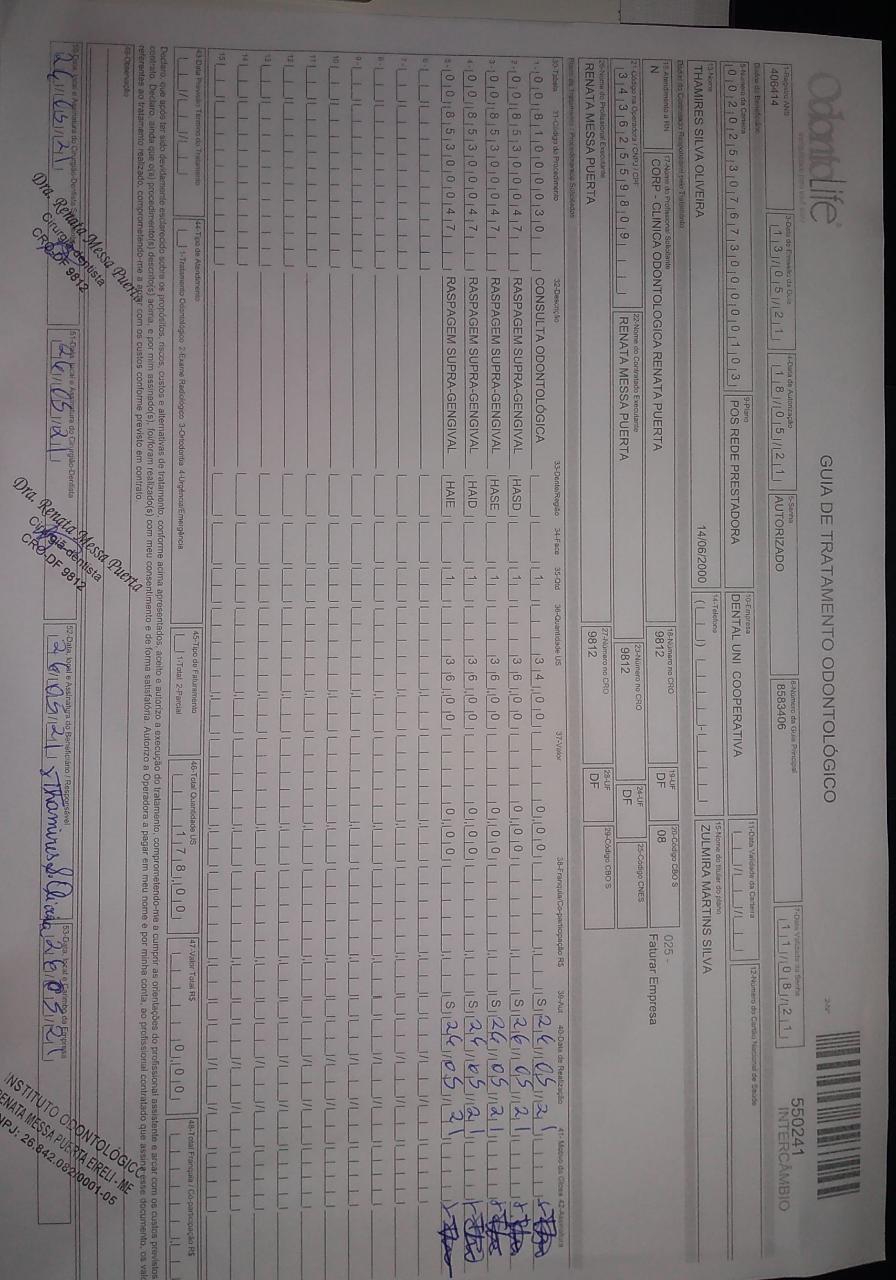 OdontoLife®
GUIA DE TRATAMENTO ODONTOLÓGICO
550241
INTERCÂMBIO
1-Registro ANS
406414
3-Data de Emissão da Guia
13/05/21
4-Data de Autorização
18/05/21
5-Senha
AUTORIZADO
6-Número da Guia Principal
8583406
7-Data Validade da Senha
11/08/21
Dados do Beneficiário
8-Número da Carteira
00202530767300000103
9-Plano
POS REDE PRESTADORA
10-Empresa
DENTAL UNI COOPERATIVA
11-Data Validade da Carteira
12-Número do Cartão Nacional de Saúde
13-Nome
THAMIRES SILVA OLIVEIRA
14/06/2000
14-Telefone
15-Nome do titular do plano
ZULMIRA MARTINS SILVA
Dados do Contratado Responsável pelo Tratamento
16-Atendimento a RN
N
17-Nome do Profissional Solicitante
CORP - CLINICA ODONTOLOGICA RENATA PUERTA
18-Número no CRO
9812
19-UF
DF
20-Código CBO S
08
025 -
Faturar Empresa
21-Código na Operadora / CNPJ / CPF
34362559809
22-Nome do Contratado Executante
RENATA MESSA PUERTA
23-Número no CRO
9812
24-UF
DF
25-Código CNES
26-Nome do Profissional Executante
RENATA MESSA PUERTA
27-Número no CRO
9812
28-UF
DF
29-Código CBO S
Plano de Tratamento / Procedimentos Solicitados
30-Tabela 31-Código do Procedimento 32-Descrição 33-Dente/Região 34-Face 35-Qtd 36-Quantidade US 37-Valor 38-Franquia/Co-participação R$ 39-Aut 40-Data de Realização 41-Motivo da Glosa 42-Assinatura
1- 00 81000030 CONSULTA ODONTOLÓGICA 1 34,00 0,00 S 26/05/21
2- 00 85300047 RASPAGEM SUPRA-GENGIVAL HASD 1 36,00 0,00 S 26/05/21
3- 00 85300047 RASPAGEM SUPRA-GENGIVAL HASE 1 36,00 0,00 S 26/05/21
4- 00 85300047 RASPAGEM SUPRA-GENGIVAL HAID 1 36,00 0,00 S 26/05/21
5- 00 85300047 RASPAGEM SUPRA-GENGIVAL HAIE 1 36,00 0,00 S 26/05/21
6-
7-
8-
9-
10-
11-
12-
13-
14-
15-
43-Data Previsão Término do Tratamento
44-Tipo de Atendimento
1-Tratamento Odontológico 2-Exame Radiológico 3-Ortodontia 4-Urgência/Emergência
45-Tipo de Faturamento
1-Total 2-Parcial
46-Total Quantidade US
178,00
47-Valor Total R$
0,00
48-Total Franquia / Co-participação R$
Declaro, que após ter sido devidamente esclarecido sobre os propósitos, riscos, custos e alternativas de tratamento, conforme acima apresentados, aceito e autorizo a execução do tratamento, comprometendo-me a cumprir as orientações do profissional assistente e arcar com os custos previstos
contrato. Declaro, ainda que o(s) procedimento(s) descrito(s) acima, e por mim assinado(s), foi/foram realizado(s) com meu consentimento e de forma satisfatória. Autorizo a Operadora a pagar em meu nome e por minha conta, ao profissional contratado que assina esse documento, os
referentes ao tratamento realizado, comprometendo-me a arcar com os custos conforme previsto em contrato.
49-Observação
26/05/21
51-Data, local e Assinatura do Cirurgião-Dentista
26/05/21
52-Data, local e Assinatura do Beneficiário / Responsável
26/05/21
53-Data, local e Carimbo da Empresa
26/05/21
Dra. Renata Messa Puerta
Cirurgiã-dentista
CRO-DF 9812
Dra. Renata Messa Puerta
Cirurgiã-dentista
CRO-DF 9812
INSTITUTO ODONTOLÓGICO
RENATA MESSA PUERTA EIRELI - ME
CNPJ: 26.842.082/0001-05